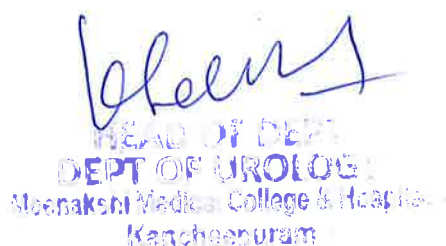 HEAD OF DEPT
DEPT OF UROLOG
Meenakshi Medic College & Hospit
Kancheepuram